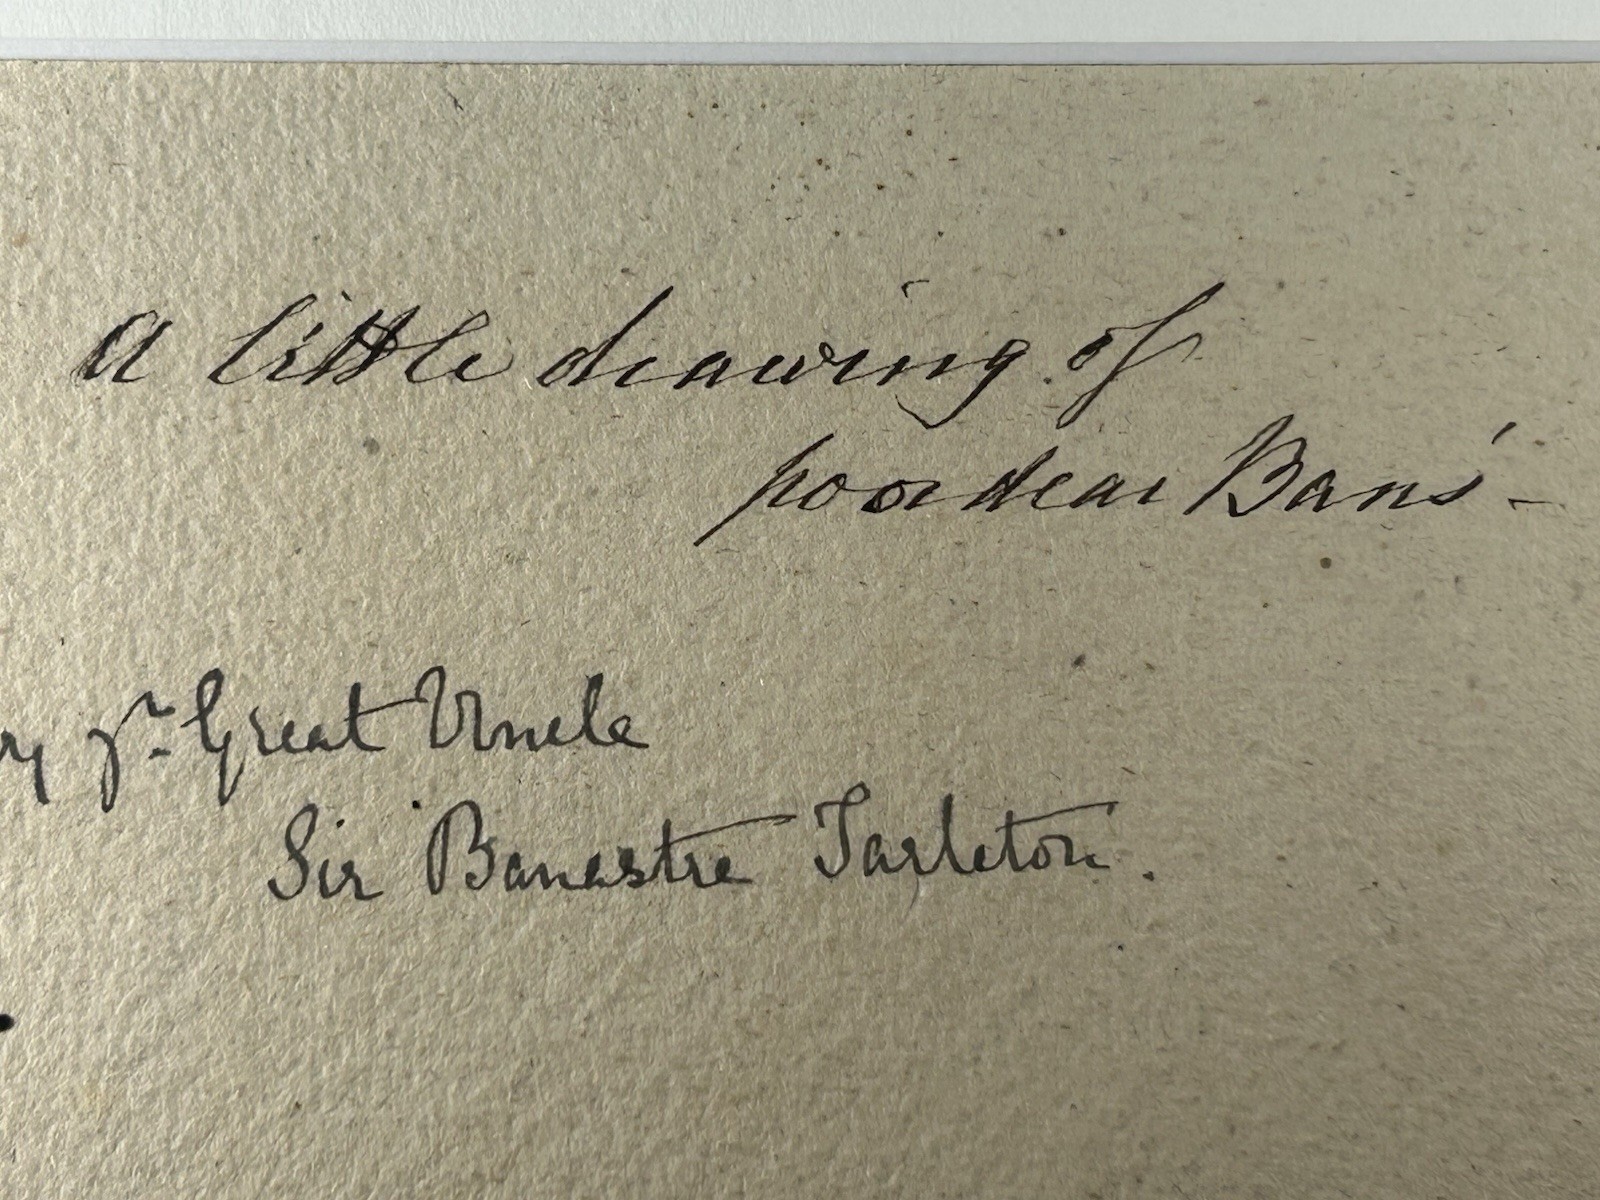 A little drawing of
poor dear Bans' -
yr. Great Uncle
Sir Banastre Tarleton.